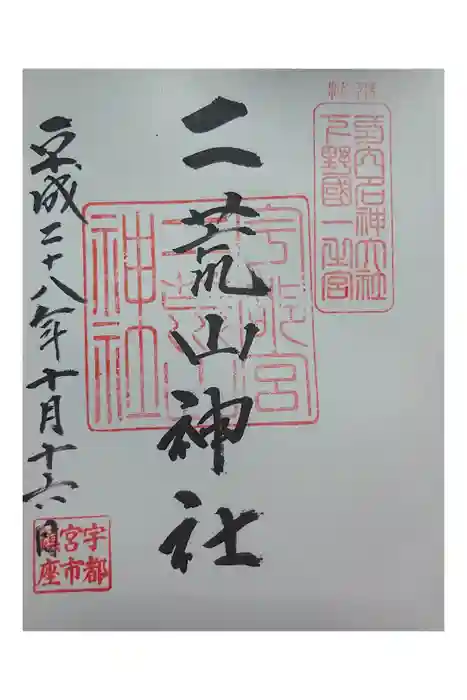 奉拝
式内名神大社
下野國一之宮
二荒山神社
宇都宮
二荒山
神社
平成二十八年十月十六日
宇都
宮市
馬場